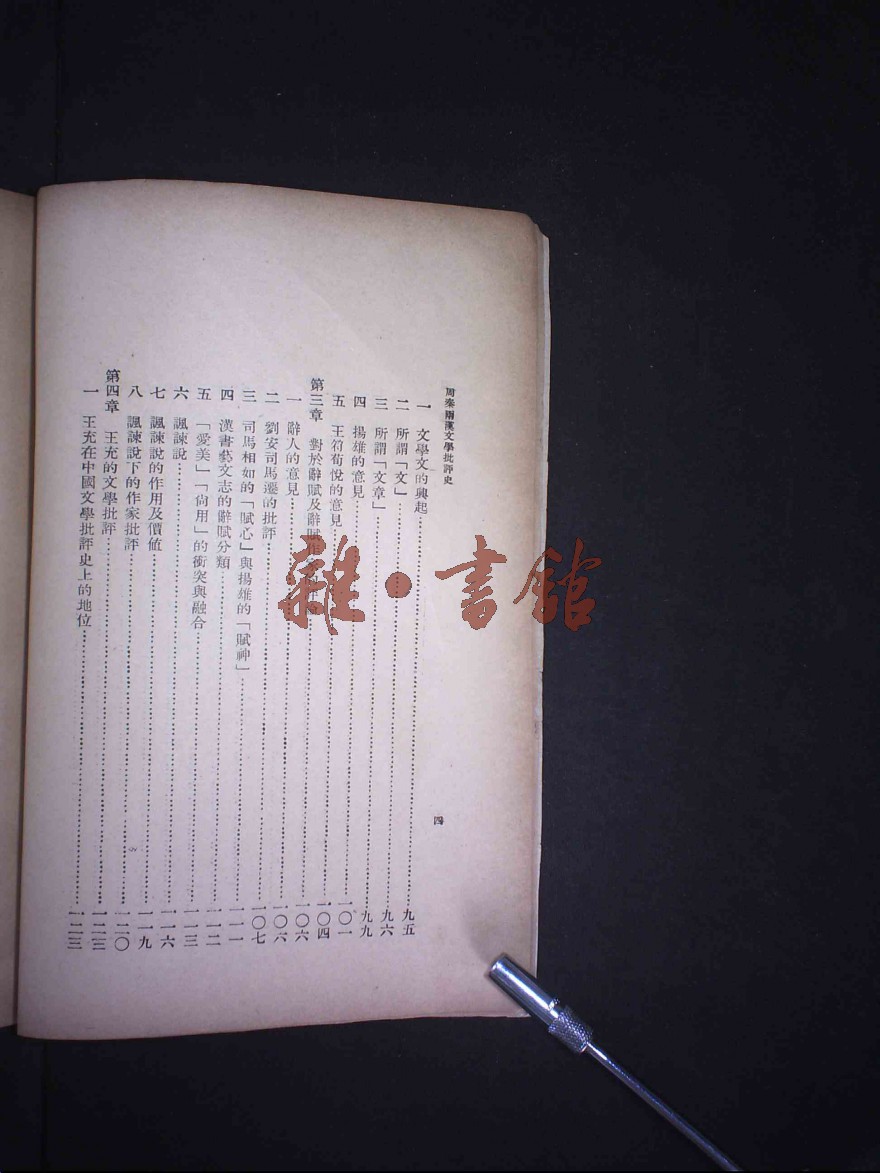 周秦兩漢文學批評史
一 文學文的興起……九五
二 所謂「文」……九六
三 所謂「文章」……九九
四 揚雄的意見……九九
五 王符荀悅的意見……一〇一
第三章 對於辭賦及辭賦……一〇四
一 辭人的意見……一〇六
二 劉安司馬遷的批評……一〇六
三 司馬相如的「賦心」與揚雄的「賦神」……一〇七
四 漢書藝文志的辭賦分類……一一一
五 「愛美」「尚用」的衝突與融合……一一二
六 諷諫說……一一三
七 諷諫說的作用及價値……一一六
八 諷諫說下的作家批評……一一九
第四章 王充的文學批評……一二〇
一 王充在中國文學批評史上的地位……一二三
四
雜·書館